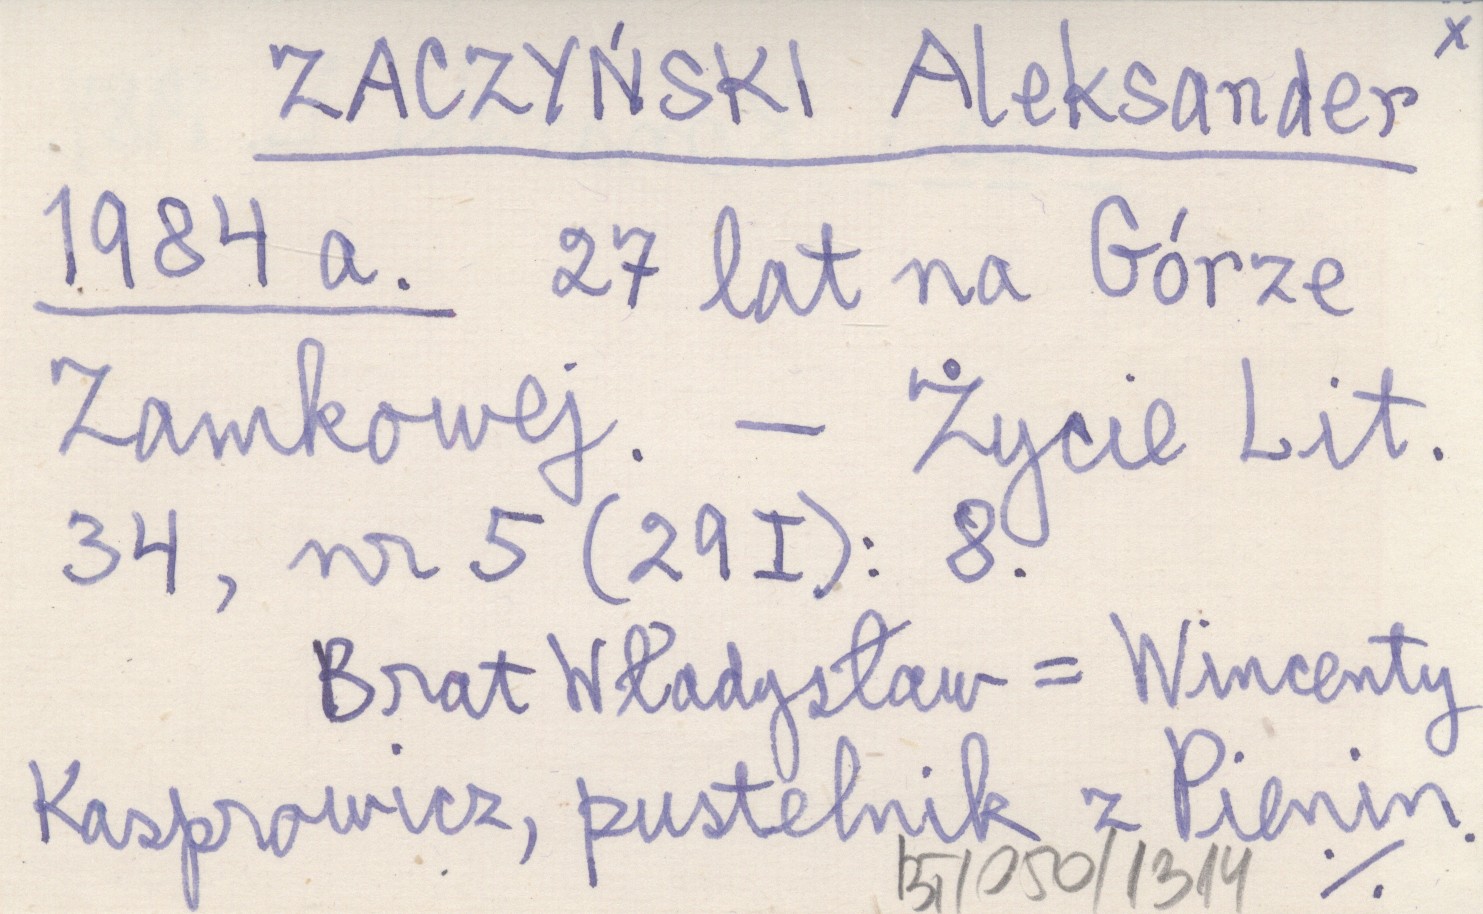 ZACZYŃSKI Aleksander x
1984 a. 27 lat na Górze
Zamkowej. — Życie Lit.
34, nr 5 (29 I): 8.
Brat Władysław = Wincenty
Kasprowicz, pustelnik z Pienin.
/050/1314 ./.